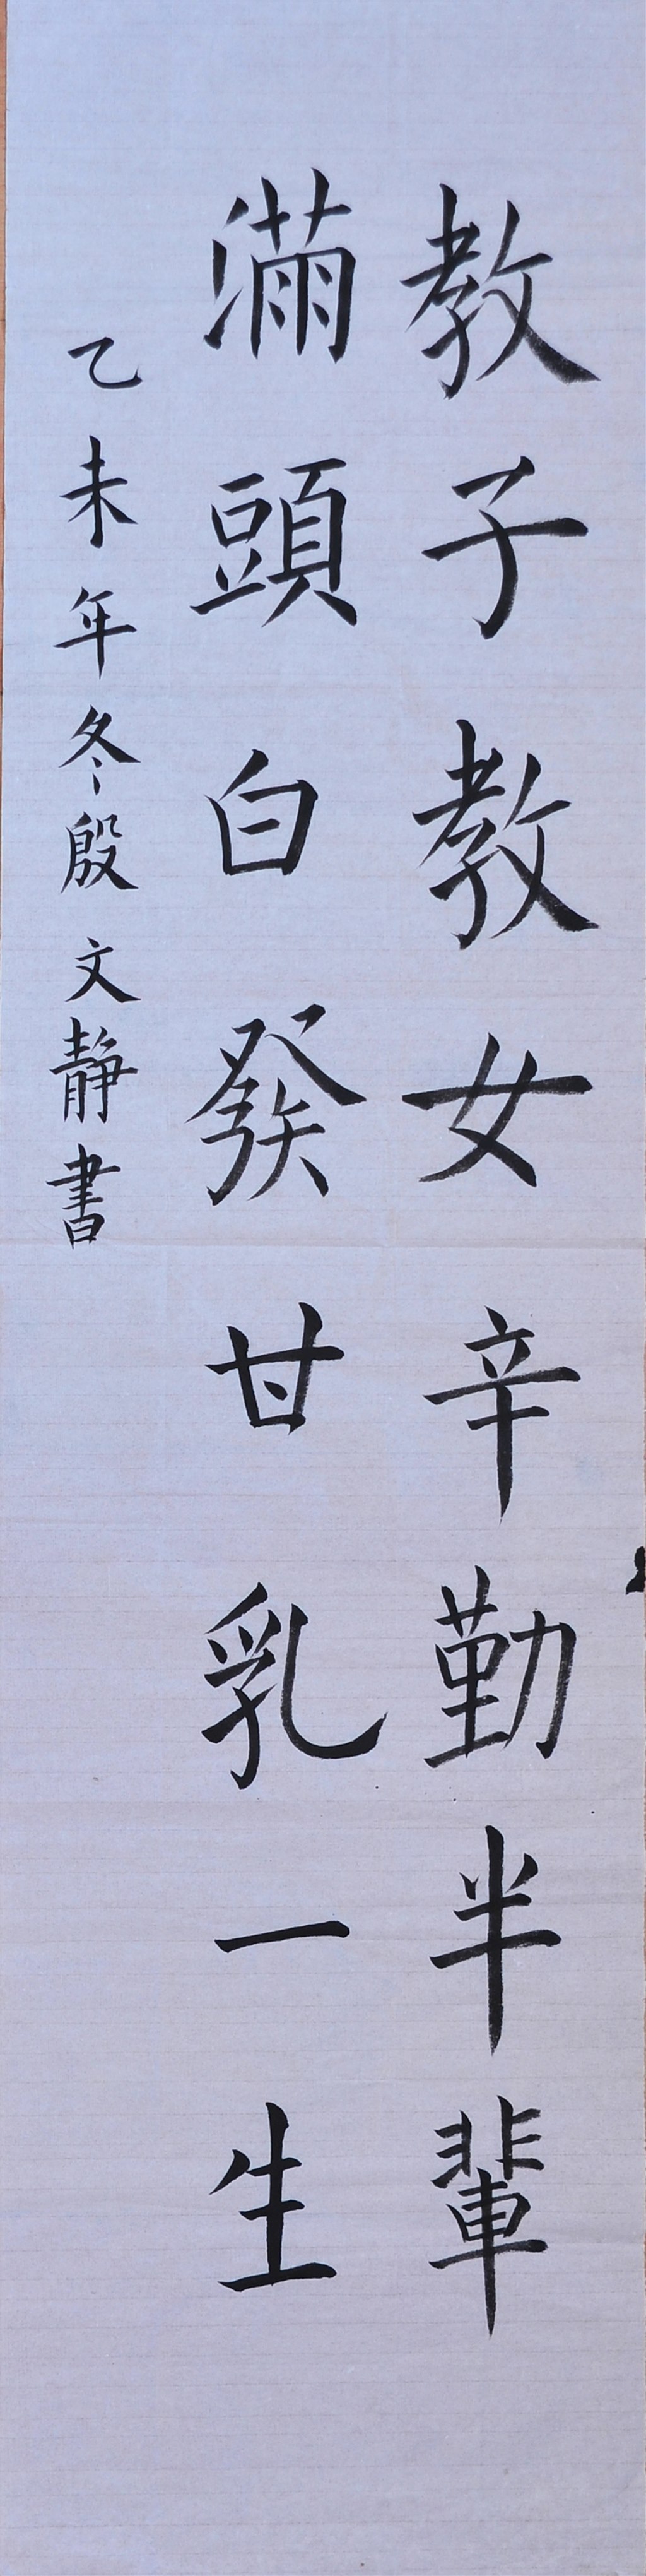 教子教女辛勤半輩
滿頭白發甘乳一生
乙未年冬殷文靜書